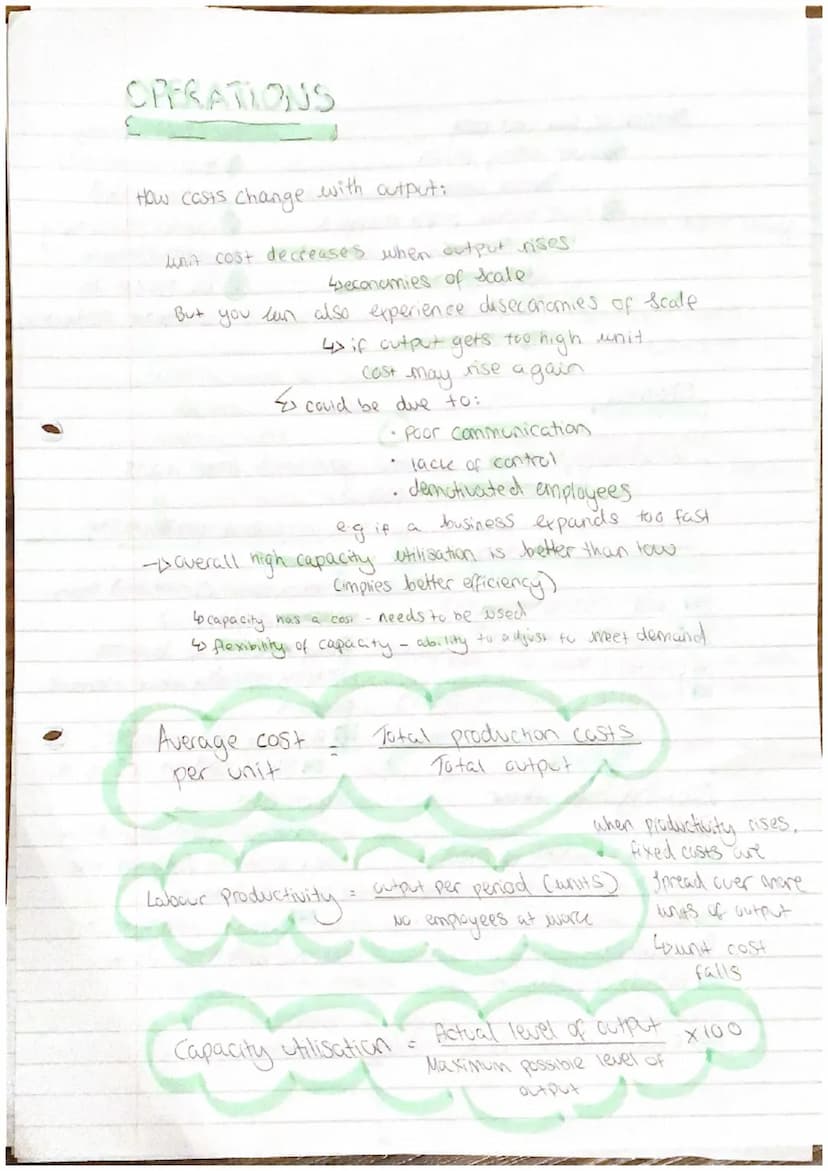 OPERATIONS
How costs change with output:
unit cost decreases when output rises
↳economies of scale
But you can also experience diseconomies of scale
↳ if output gets too high unit
cost may rise again
↳ could be due to:
· Poor communication
· lack of control
· demotivated employees
e.g if a business expands too fast
→ overall high capacity utilisation is better than low
(implies better efficiency)
↳ capacity has a cost - needs to be used
↳ flexibility of capacity - ability to adjust to meet demand
Average cost per unit = Total production costs
Total output
when productivity rises,
fixed costs are
spread over more
units of output
↳ unit cost
falls
Labour Productivity = output per period (units)
No employees at work
Capacity utilisation = Actual level of output × 100
Maximum possible level of
output